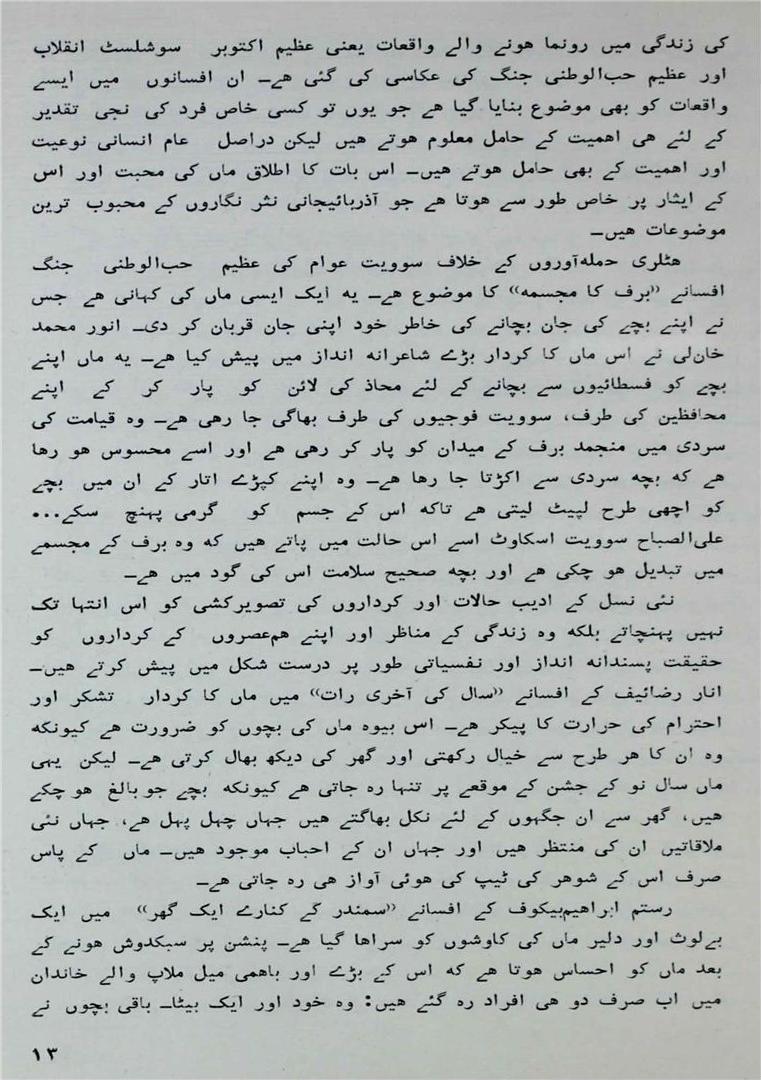 کی زندگی میں رونما ہونے والے واقعات یعنی عظیم اکتوبر سوشلسٹ انقلاب
اور عظیم حب‌الوطنی جنگ کی عکاسی کی گئی ہے۔ ان افسانوں میں ایسے
واقعات کو بھی موضوع بنایا گیا ہے جو یوں تو کسی خاص فرد کی نجی تقدیر
کے لئے ہی اہمیت کے حامل معلوم ہوتے ہیں لیکن دراصل عام انسانی نوعیت
اور اہمیت کے بھی حامل ہوتے ہیں۔ اس بات کا اطلاق ماں کی محبت اور اس
کے ایثار پر خاص طور سے ہوتا ہے جو آذربائیجانی نثر نگاروں کے محبوب ترین
موضوعات ہیں۔
ہٹلری حملہ‌آوروں کے خلاف سوویت عوام کی عظیم حب‌الوطنی جنگ
افسانے ”برف کا مجسمہ“ کا موضوع ہے۔ یہ ایک ایسی ماں کی کہانی ہے جس
نے اپنے بچے کی جان بچانے کی خاطر خود اپنی جان قربان کر دی۔ انور محمد
خان‌لی نے اس ماں کا کردار بڑے شاعرانہ انداز میں پیش کیا ہے۔ یہ ماں اپنے
بچے کو فسطائیوں سے بچانے کے لئے محاذ کی لائن کو پار کر کے اپنے
محافظین کی طرف، سوویت فوجیوں کی طرف بھاگی جا رہی ہے۔ وہ قیامت کی
سردی میں منجمد برف کے میدان کو پار کر رہی ہے اور اسے محسوس ہو رہا
ہے کہ بچہ سردی سے اکڑتا جا رہا ہے۔ وہ اپنے کپڑے اتار کے ان میں بچے
کو اچھی طرح لپیٹ لیتی ہے تاکہ اس کے جسم کو گرمی پہنچ سکے...
علی‌الصباح سوویت اسکاوٹ اسے اس حالت میں پاتے ہیں کہ وہ برف کے مجسمے
میں تبدیل ہو چکی ہے اور بچہ صحیح سلامت اس کی گود میں ہے۔
نئی نسل کے ادیب حالات اور کرداروں کی تصویرکشی کو اس انتہا تک
نہیں پہنچاتے بلکہ وہ زندگی کے مناظر اور اپنے ہم‌عصروں کے کرداروں کو
حقیقت پسندانہ انداز اور نفسیاتی طور پر درست شکل میں پیش کرتے ہیں۔
انار رضائیف کے افسانے ”سال کی آخری رات“ میں ماں کا کردار تشکر اور
احترام کی حرارت کا پیکر ہے۔ اس بیوہ ماں کی بچوں کو ضرورت ہے کیونکہ
وہ ان کا ہر طرح سے خیال رکھتی اور گھر کی دیکھ بھال کرتی ہے۔ لیکن یہی
ماں سال نو کے جشن کے موقعے پر تنہا رہ جاتی ہے کیونکہ بچے جو بالغ ہو چکے
ہیں، گھر سے ان جگہوں کے لئے نکل بھاگتے ہیں جہاں چہل پہل ہے، جہاں نئی
ملاقاتیں ان کی منتظر ہیں اور جہاں ان کے احباب موجود ہیں۔ ماں کے پاس
صرف اس کے شوہر کی ٹیپ کی ہوئی آواز ہی رہ جاتی ہے۔
رستم ابراہیم‌بیکوف کے افسانے ”سمندر کے کنارے ایک گھر“ میں ایک
بے‌لوث اور دلیر ماں کی کاوشوں کو سراہا گیا ہے۔ پنشن پر سبکدوش ہونے کے
بعد ماں کو احساس ہوتا ہے کہ اس کے بڑے اور باہمی میل ملاپ والے خاندان
میں اب صرف دو ہی افراد رہ گئے ہیں: وہ خود اور ایک بیٹا۔ باقی بچوں نے
۱۳